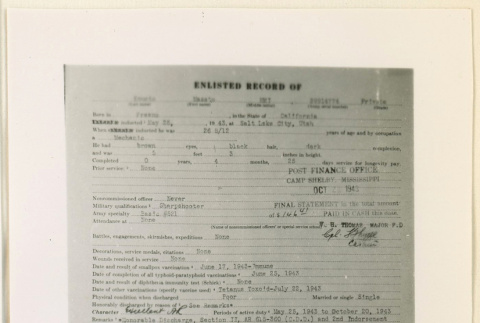 ENLISTED RECORD OF
NMI Private
Born in Fresno , in the State of California
inducted May 28, 1943, at Salt Lake City, Utah
When inducted he was 26 8/12 years of age and by occupation
a Mechanic
He had brown eyes, black hair, dark complexion,
and was 5 feet 3 inches in height.
Completed 0 years, 4 months, 28 days service for longevity pay.
Prior service: None
POST FINANCE OFFICE
CAMP SHELBY MISSISSIPPI
OCT 1943
FINAL STATEMENT in the total amount
of $ PAID IN CASH this date.
W. H. THOMAS, MAJOR F.D.
Noncommissioned officer Never
Military qualifications Sharpshooter
Army specialty
Attendance at None
Battles, engagements, skirmishes, expeditions None
Decorations, service medals, citations None
Wounds received in service None
Date and result of smallpox vaccination June 12, 1943-Immune
Date of completion of all typhoid-paratyphoid vaccinations June 23, 1943
Date and result of diphtheria immunity test (Schick) None
Date of other vaccinations (specify vaccine used) Tetanus Toxo'd-July 22, 1943
Physical condition when discharged Poor Married or single Single
Honorably discharged by reason of See Remarks
Character Excellent Periods of active duty May 28, 1943 to October 20, 1943
Remarks Honorable Discharge, Section II, AR 615-360 (C.D.D.) and 2nd Indorsement